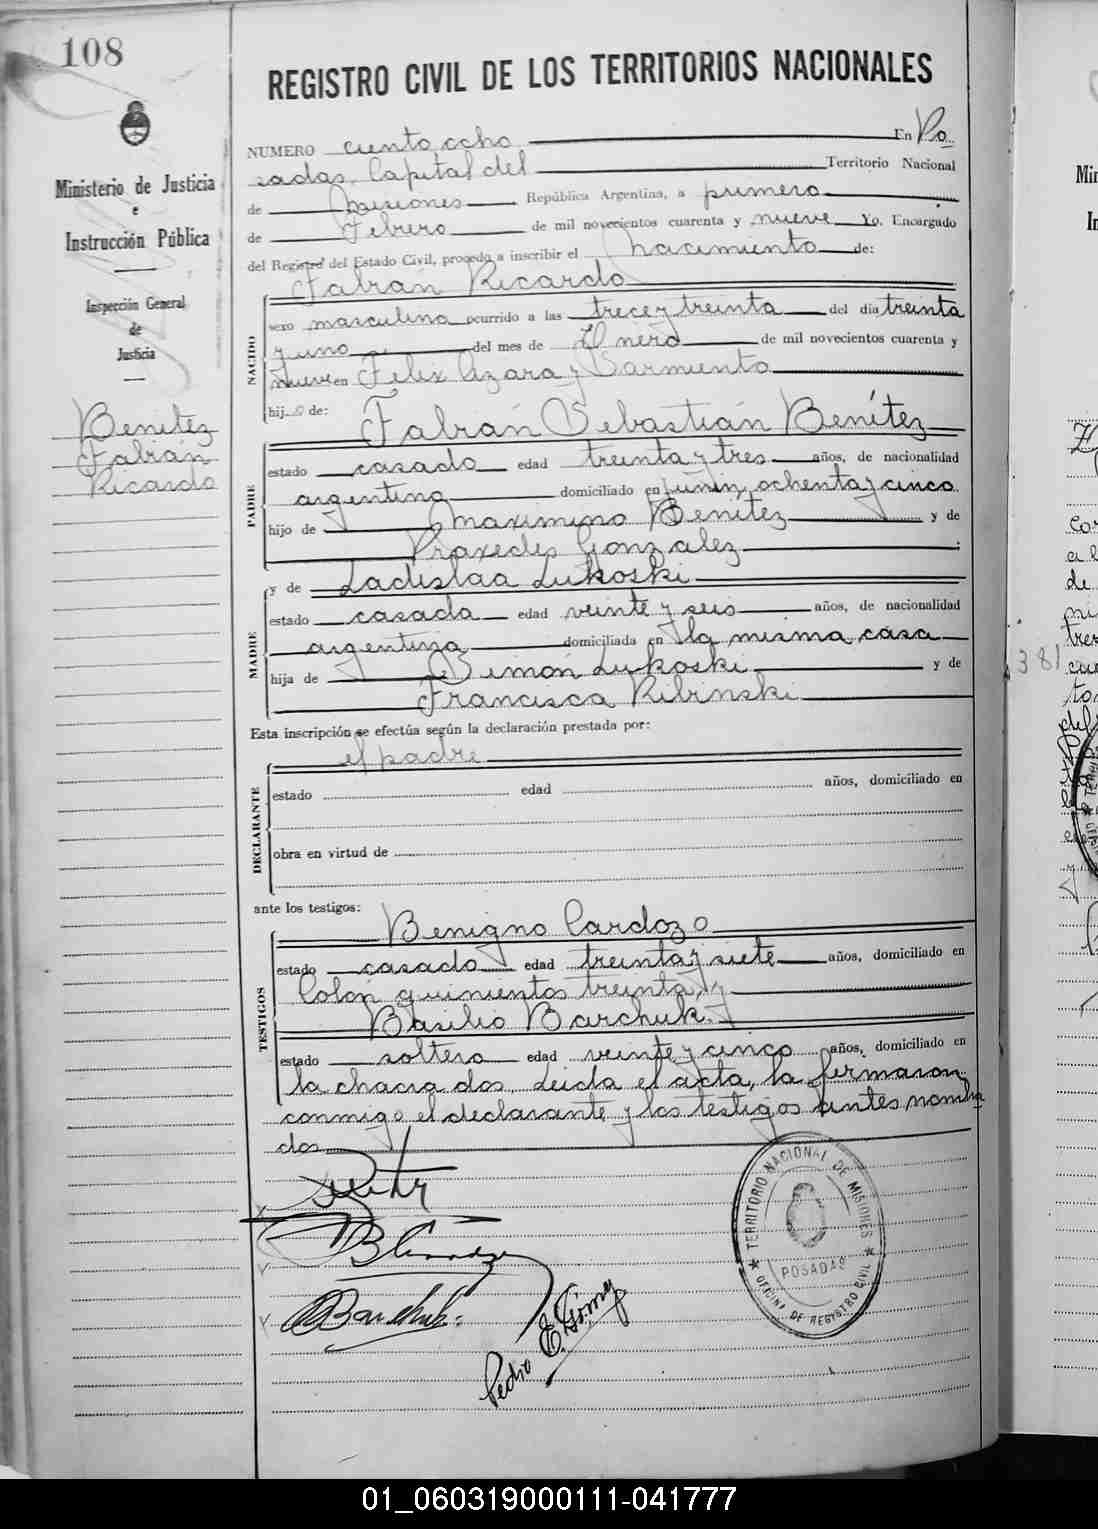 108
REGISTRO CIVIL DE LOS TERRITORIOS NACIONALES
Ministerio de Justicia
e
Instrucción Pública
Inspección General
de
Justicia
Benitez
Fabián
Ricardo
NUMERO ciento ocho En Po
sadas, Capital del Territorio Nacional
de Misiones República Argentina, a primero
de Febrero de mil novecientos cuarenta y nueve Yo, Encargado
del Registro del Estado Civil, procedo a inscribir el nacimiento de:
Fabián Ricardo
NACIDO
sexo masculino ocurrido a las trece y treinta del dia treinta
y uno del mes de Enero de mil novecientos cuarenta y
nueve en Felix Azara y Sarmiento
hijo de: Fabián Sebastián Benítez
PADRE
estado casado edad treinta y tres años, de nacionalidad
argentina domiciliado en Junín, ochenta y cinco
hijo de Maximino Benitez y de
Praxedes Gonzalez
y de Ladislaa Lukoski
MADRE
estado casada edad veinte y seis años, de nacionalidad
argentina domiciliada en la misma casa
hija de Simón Lukoski y de
Francisca Ribinski
Esta inscripción se efectúa según la declaración prestada por:
el padre
DECLARANTE
estado edad años, domiciliado en
obra en virtud de
ante los testigos:
Benigno Cardozo
TESTIGOS
estado casado edad treinta y siete años, domiciliado en
Colón quinientos treinta, y
Basilio Barchuk.
estado soltero edad veinte y cinco años, domiciliado en
la chacra dos. Leida el acta, la firmaron
conmigo el declarante y los testigos antes nombra
dos
Barchuk
Pedro E. Gómez
TERRITORIO NACIONAL DE MISIONES
POSADAS
OFICINA DE REGISTRO CIVIL
381
01_060319000111-041777